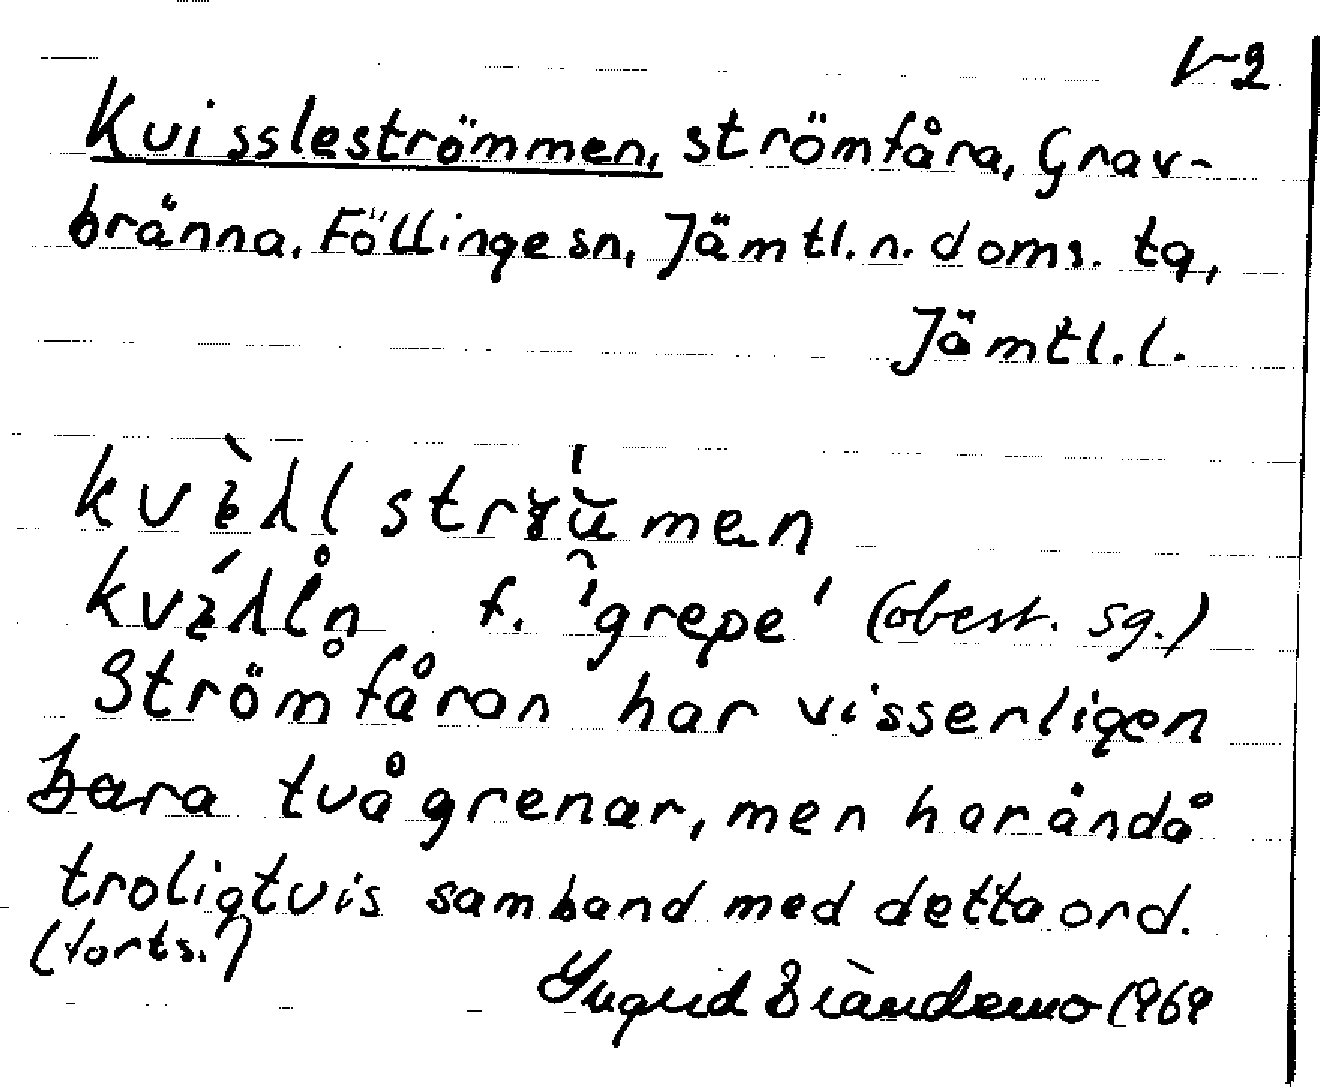 1-2
Kvisslestrommen, strömfåra, Grav-
bränna, Föllinge sn, Jämtl. n. doms. tg,
Jämtl. l.
f. 'grepe' (obest. sg.)
Strömfåran har visserligen
bara två grenar, men har ändå
troligtvis samband med detta ord.
(forts.)
Ingrid 1969